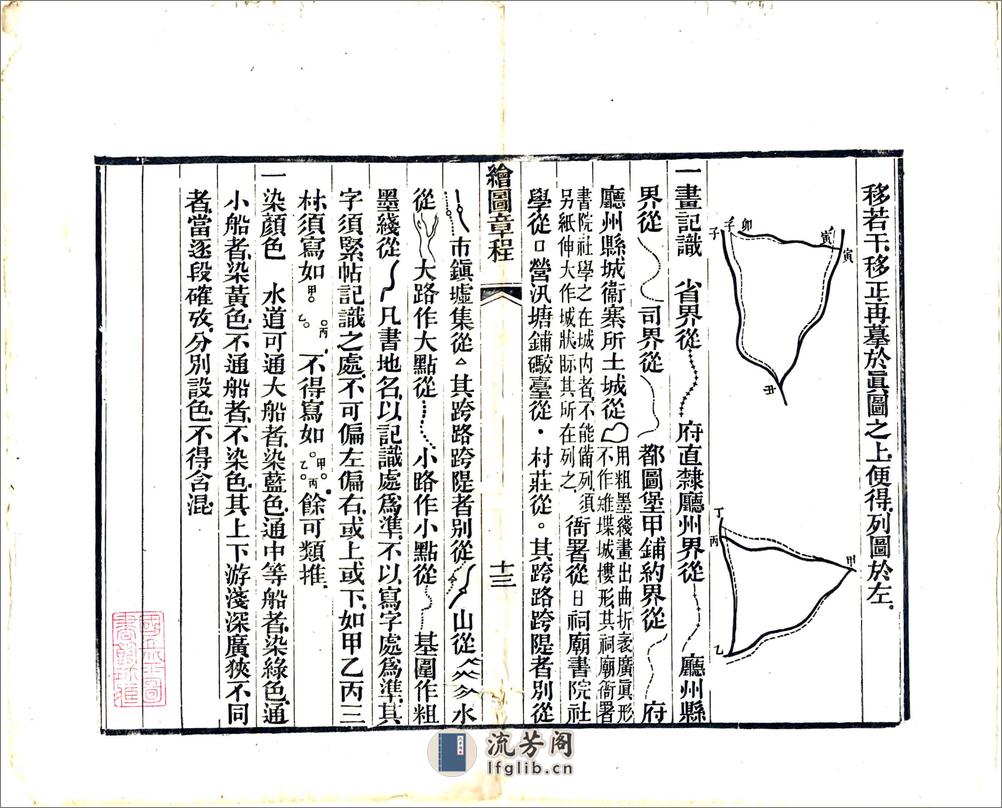 移若干移正再墓於眞圖之上便得列圖於左
子
壬
卯
寅
寅
丑
丁
丙
甲
乙
一畫記識　省界從　府直隸廳州界從　廳州縣
界從　司界從　都圖堡甲鋪約界從　府
廳州縣城衞寨所土城從　用粗墨綫畫出曲折袤廣眞形
不作雉堞城樓形其祠廟衙署
書院社學之在城内者不能備列須
另紙伸大作城狀眎其所在列之　衙署從日祠廟書院社
學從口營汛塘鋪礮臺從·村莊從。其跨路跨隄者別從
繪圖章程
十三
市鎭墟集從△其跨路跨隄者別從　山從　水
從　大路作大點從　小路作小點從　基圍作粗
墨綫從　凡書地名以記識處爲準不以寫字處爲準其
字須緊帖記識之處不可偏左偏右或上或下如甲乙丙三
村須寫如甲。乙。。丙不得寫如。甲。乙。丙餘可類推
一染顏色　水道可通大船者染藍色通中等船者染綠色通
小船者染黃色不通船者不染色其上下游淺深廣狹不同
者當逐段確攷分別設色不得含混
流芳阁
lfglib.cn